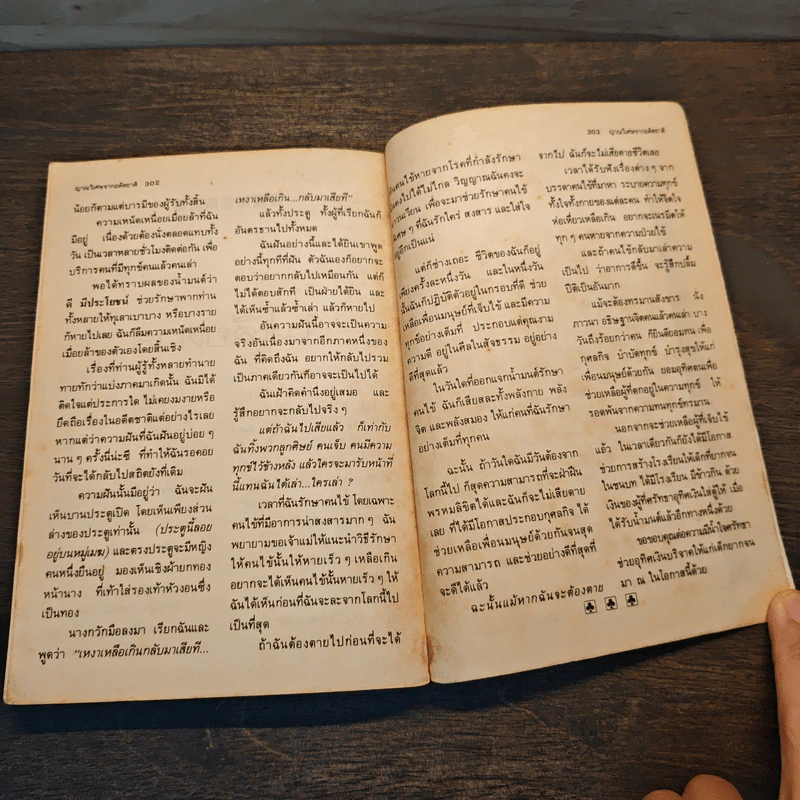 ญาณวิเศษจากอดีตชาติ 302
น้อยก็ตามแต่บารมีของผู้รับทั้งสิ้น
ความเหนื่อยเมื่อยล้าที่ฉัน
มีอยู่ เนื่องด้วยต้องนั่งตลอดแทบทั้ง
วัน เป็นเวลาหลายชั่วโมงติดต่อกัน เพื่อ
บริการคนที่มีทุกข์คนแล้วคนเล่า
พอได้ทราบผลของน้ำมนต์ว่า
ดี มีประโยชน์ ช่วยรักษาพวกท่าน
ทั้งหลายให้ทุเลาเบาบาง หรือบางราย
ก็หายไปเลย ฉันก็ลืมความเหนื่อย
เมื่อยล้าของตัวเองโดยสิ้นเชิง
เรื่องที่ท่านผู้รู้ทั้งหลายทำนาย
ทายทักว่าแบ่งภาคมาเกิดนั้น ฉันมิได้
ติดใจแต่ประการใด ไม่เคยงมงายหรือ
ยึดถือเรื่องในอดีตชาติแต่อย่างไรเลย
หากแต่ว่าความฝันที่ฉันฝันอยู่บ่อย ๆ
นาน ๆ ครั้งนี่น่ะซี ที่ทำให้ฉันรอคอย
วันที่จะได้กลับไปสถิตยังที่เดิม
ความฝันนั้นมีอยู่ว่า ฉันจะฝัน
เห็นบานประตูเปิด โดยเห็นเพียงส่วน
ล่างของประตูเท่านั้น (ประตูนี้ลอย
อยู่บนหมู่เมฆ) และตรงประตูจะมีหญิง
คนหนึ่งยืนอยู่ มองเห็นเชิงผ้ายกทอง
หน้านาง ที่เท้าใส่รองเท้าหัวงอนซึ่ง
เป็นทอง
นางกวักมือลงมา เรียกฉันและ
พูดว่า “เหงาเหลือเกินกลับมาเสียที...
เหงาเหลือเกิน...กลับมาเสียที”
แล้วทั้งประตู ทั้งผู้ที่เรียกฉันก็
อันตรธานไปทั้งหมด
ฉันฝันอย่างนี้และได้ยินเขาพูด
อย่างนี้ทุกทีที่ฝัน ตัวฉันเองก็อยากจะ
ตอบว่าอยากกลับไปเหมือนกัน แต่ก็
ไม่ได้ตอบสักที เป็นฝ่ายได้ยิน และ
ได้เห็นซ้ำแล้วซ้ำเล่า แล้วก็หายไป
อันความฝันนี้อาจจะเป็นความ
จริงอันเนื่องมาจากอีกภาคหนึ่งของ
ฉัน ที่คิดถึงฉัน อยากให้กลับไปรวม
เป็นภาคเดียวกันก็อาจจะเป็นไปได้
ฉันเฝ้าคิดคำนึงอยู่เสมอ และ
รู้สึกอยากจะกลับไปจริง ๆ
แต่ถ้าฉันไปเสียแล้ว ก็เท่ากับ
ฉันทิ้งพวกลูกศิษย์ คนเจ็บ คนมีความ
ทุกข์ไว้ข้างหลัง แล้วใครจะมารับหน้าที่
นี้แทนฉันได้เล่า...ใครเล่า ?
เวลาที่ฉันรักษาคนไข้ โดยเฉพาะ
คนไข้ที่มีอาการน่าสงสารมาก ๆ ฉัน
พยายามขอเจ้าแม่ให้แนะนำวิธีรักษา
ให้คนไข้นั้นให้หายเร็ว ๆ เหลือเกิน
อยากจะได้เห็นคนไข้นั้นหายเร็ว ๆ ให้
ฉันได้เห็นก่อนที่ฉันจะละจากโลกนี้ไป
เป็นที่สุด
ถ้าฉันต้องตายไปก่อนที่จะได้
303 ญาณวิเศษจากอดีตชาติ
คนไข้หายจากโรคที่กำลังรักษา
คงไปได้ไม่ไกล วิญญาณฉันคงจะ
วนเวียน เพื่อจะมาช่วยรักษาคนไข้
ๆ ที่ฉันรักใคร่ สงสาร และใส่ใจ
อยู่อีกเป็นแน่
แต่ก็ช่างเถอะ ชีวิตของฉันก็อยู่
เพียงครั้งละหนึ่งวัน และในหนึ่งวัน
นั้นฉันก็ปฏิบัติตัวอยู่ในกรอบที่ดี ช่วย
เหลือเพื่อนมนุษย์ที่เจ็บไข้ และมีความ
ทุกข์อย่างเต็มที่ ประกอบแต่คุณงาม
ความดี อยู่ในศีลในสัจธรรม อยู่อย่าง
ดีที่สุดแล้ว
ในวันใดที่ออกแจกน้ำมนต์รักษา
คนไข้ ฉันก็เสียสละทั้งพลังกาย พลัง
จิต และพลังสมอง ให้แก่คนที่ฉันรักษา
อย่างเต็มที่ทุกคน
ฉะนั้น ถ้าวันใดฉันมีวันต้องจาก
โลกนี้ไป ก็สุดความสามารถที่จะฝ่าฝืน
พรหมลิขิตได้และฉันก็จะไม่เสียดาย
เลย ที่ได้มีโอกาสประกอบกุศลกิจ ได้
ช่วยเหลือเพื่อนมนุษย์ด้วยกันจนสุด
ความสามารถ และช่วยอย่างดีที่สุดที่
จะดีได้แล้ว
ฉะนั้นแม้หากฉันจะต้องตาย
จากไป ฉันก็จะไม่เสียดายชีวิตเลย
เวลาได้รับฟังเรื่องต่าง ๆ จาก
บรรดาคนไข้ที่มาหา ระบายความทุกข์
ทั้งใจทั้งกายของแต่ละคน ทำให้จิตใจ
ห่อเหี่ยวเหลือเกิน อยากจะเนรมิตให้
ทุก ๆ คนหายจากความป่วยไข้
และถ้าคนไข้กลับมาเล่าความ
เป็นไป ว่าอาการดีขึ้น จะรู้สึกปลื้ม
ปีติเป็นอันมาก
แม้จะต้องทรมานสังขาร นั่ง
ภาวนา อธิษฐานจิตคนแล้วคนเล่า บาง
วันถึงร้อยกว่าคน ก็ยินดียอมทน เพื่อ
กุศลกิจ บำบัดทุกข์ บำรุงสุขให้แก่
เพื่อนมนุษย์ด้วยกัน ยอมอุทิศตนเพื่อ
ช่วยเหลือผู้ที่ตกอยู่ในความทุกข์ ให้
รอดพ้นจากความทนทุกข์ทรมาน
นอกจากจะช่วยเหลือผู้ที่เจ็บไข้
แล้ว ในเวลาเดียวกันก็ยังได้มีโอกาส
ช่วยการสร้างโรงเรียนให้เด็กที่ยากจน
ในชนบท ได้มีโรงเรียน มีข้าวกิน ด้วย
เงินของผู้ที่ศรัทธาอุทิศเงินใส่ตู้ให้ เมื่อ
ได้รับน้ำมนต์แล้วอีกทางหนึ่งด้วย
ขอขอบคุณต่อความมีน้ำใจศรัทธา
ช่วยอุทิศเงินบริจาคให้แก่เด็กยากจน
มา ณ ในโอกาสนี้ด้วย